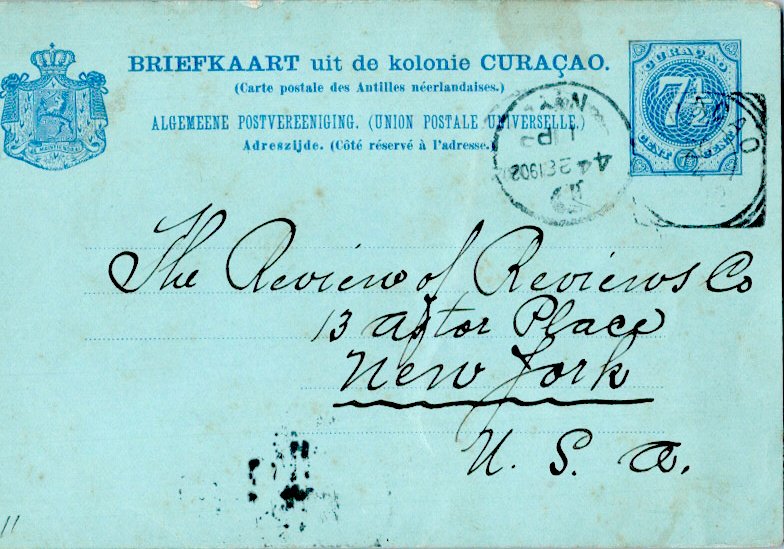 BRIEFKAART uit de kolonie CURAÇAO.
(Carte postale des Antilles néerlandaises.)
ALGEMEENE POSTVEREENIGING. (UNION POSTALE UNIVERSELLE.)
Adreszijde. (Côté réservé à l'adresse.)
CURAÇAO
7 1/2
CENT CENT
1902
The Review of Reviews Co
13 Astor Place
New York
U. S. A.
11